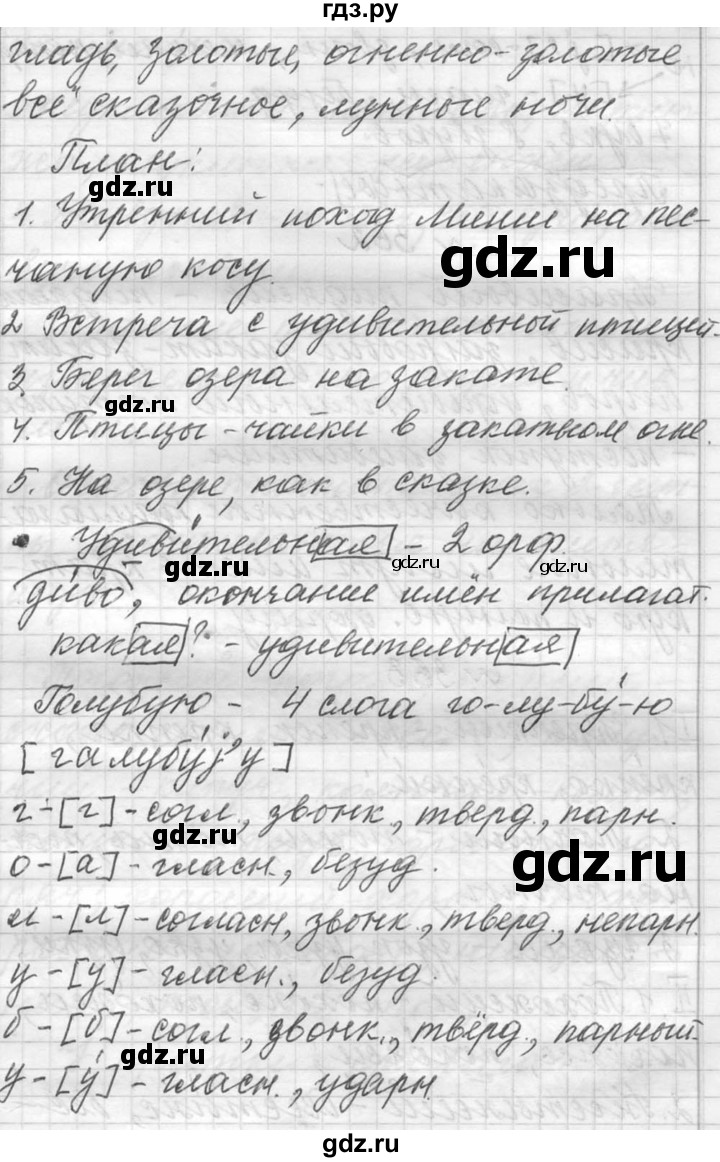 гдз.ру
гладь, золотые, огненно-золотые
всё сказочное, лунные ночи.
План:
gdz.ru
1. Утренний поход Миши на пес-
gdz.ru
чаную косу.
2 Встреча с удивительный птицей.
3. Берег озера на закате.
gdz.ru
4. Птицы - чайки в закатном огне.
5. На озере, как в сказке.
Удивительная - 2 орф.
gdz.ru
gdz.ru
gdz.ru
диво, окончание имён прилагат.
какая? - удивительная
Голубую - 4 слога го-лу-бу́-ю
[галубу́й'у]
г - [г] - согл., звонк., тверд., парн.
gdz.ru
gdz.ru
о - [а] - гласн., безуд.
л - [л] - согласн, звонк., тверд., непарн.
у - [у] - гласн., безуд.
б - [б] - согл., звонк., твёрд., парный.
gdz.ru
у - [у́] - гласн., ударн.
gdz.ru